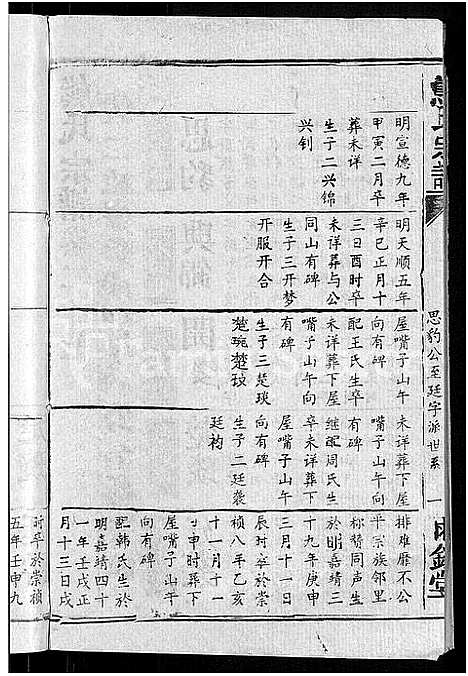 宗譜
思豹公至廷字派世系
一
明宣德九年
甲寅二月卒
葬未详
生子二兴锦
兴钊
明天顺五年
辛巳正月十
三日酉时卒
未详葬与公
同山有碑
生子三开梦
开服开合
屋嘴子山午
向有碑
配王氏生卒
未详葬下屋
嘴子山午向
有碑
生子三楚琰
楚琬楚玟
未详葬下屋
嘴子山午向
有碑
继配周氏生
卒未详葬下
屋嘴子山午
向有碑
生子二廷袭
廷袀
排难靡不公
平宗族邻里
称赞同声生
於明嘉靖三
十九年庚申
三月十一日
辰时卒於崇
祯八年乙亥
十一月十一
日申时葬下
屋嘴子山午
向有碑
配韩氏生於
明嘉靖四十
一年壬戌正
月十三日戌
时卒於崇祯
五年壬申九